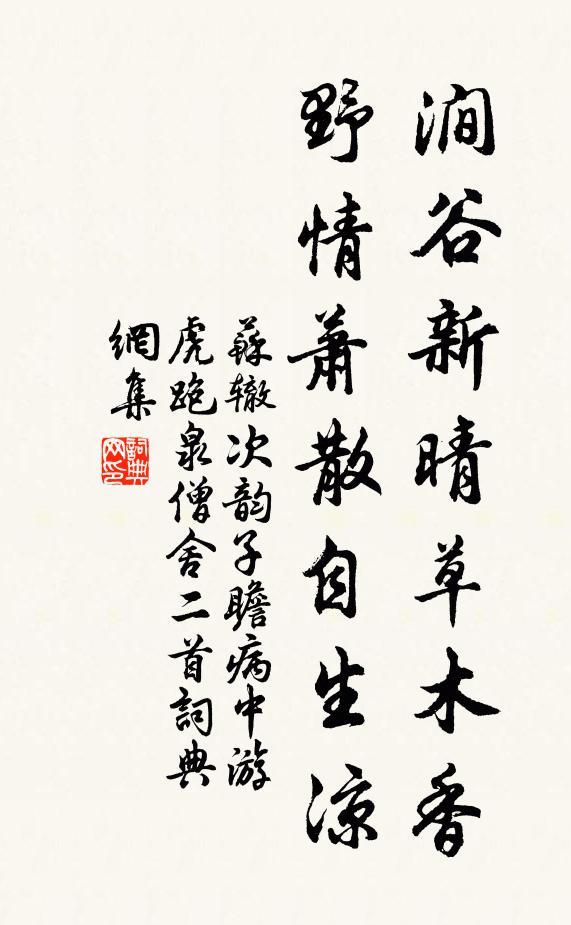 澗谷新晴草木香
野情萧散自生凉
蘇辙次韵子瞻病中游
虎跑泉僧舍二首詞典
網集
詞典
网印